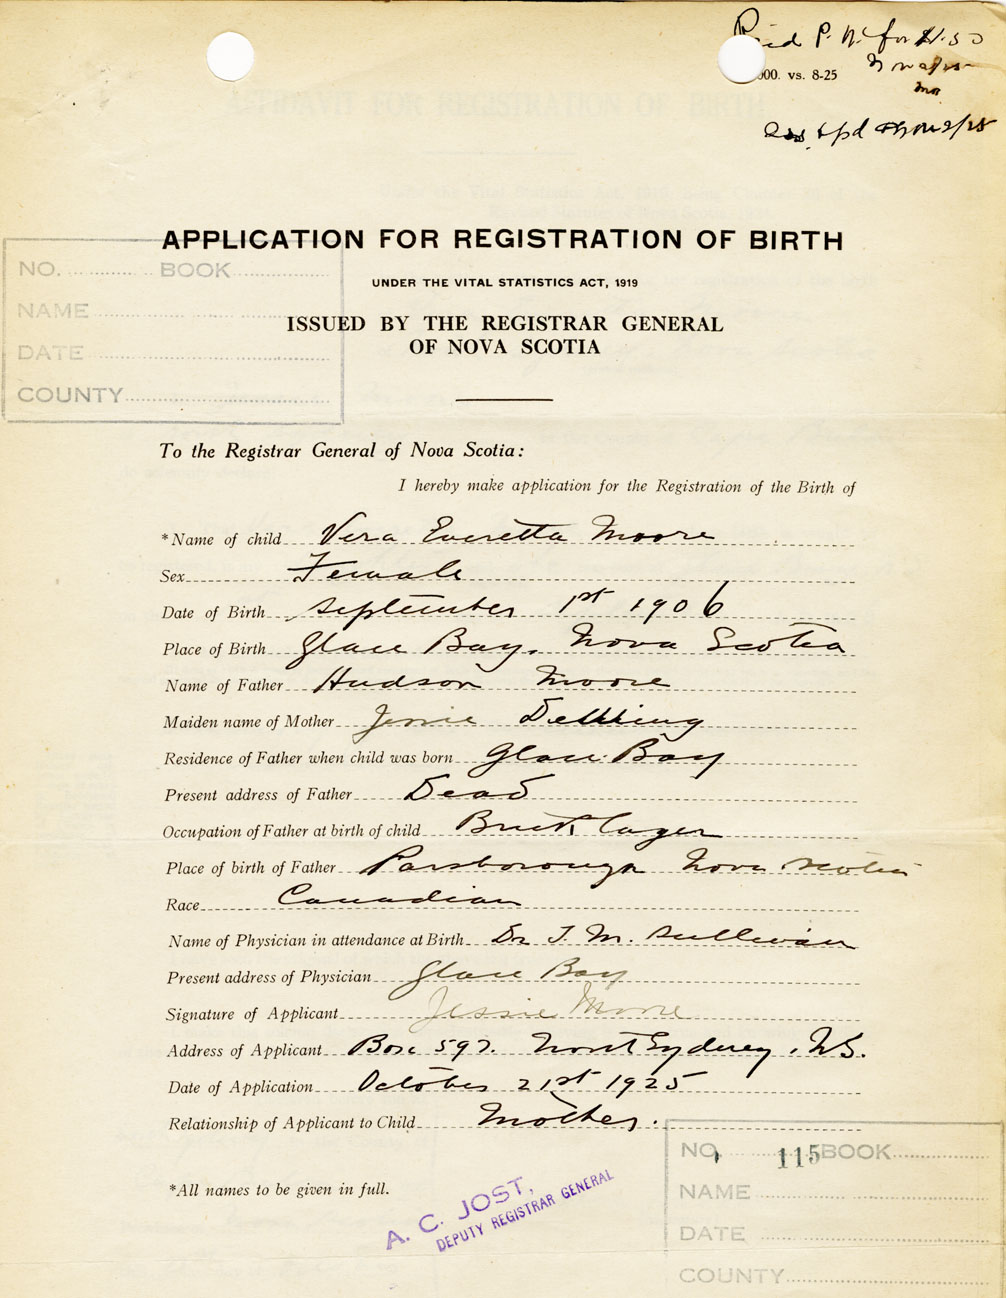 Paid P. N. for $1.50
000. vs. 8-25
Nov 2/25
APPLICATION FOR REGISTRATION OF BIRTH
UNDER THE VITAL STATISTICS ACT, 1919
ISSUED BY THE REGISTRAR GENERAL
OF NOVA SCOTIA
NO. BOOK
NAME
DATE
COUNTY
To the Registrar General of Nova Scotia:
I hereby make application for the Registration of the Birth of
*Name of child Vera Everetta Moore
Sex Female
Date of Birth September 1st 1906
Place of Birth Glace Bay, Nova Scotia
Name of Father Hudson Moore
Maiden name of Mother Jessie
Residence of Father when child was born Glace Bay
Present address of Father Dead
Occupation of Father at birth of child Brick layer
Place of birth of Father Parsborough Nova Scotia
Race Canadian
Name of Physician in attendance at Birth Dr J. M. Sullivan
Present address of Physician Glace Bay
Signature of Applicant Jessie Moore
Address of Applicant Box 597. North Sydney, N.S.
Date of Application October 21st 1925
Relationship of Applicant to Child Mother.
*All names to be given in full.
A. C. JOST,
DEPUTY REGISTRAR GENERAL
NO. 115 BOOK
NAME
DATE
COUNTY